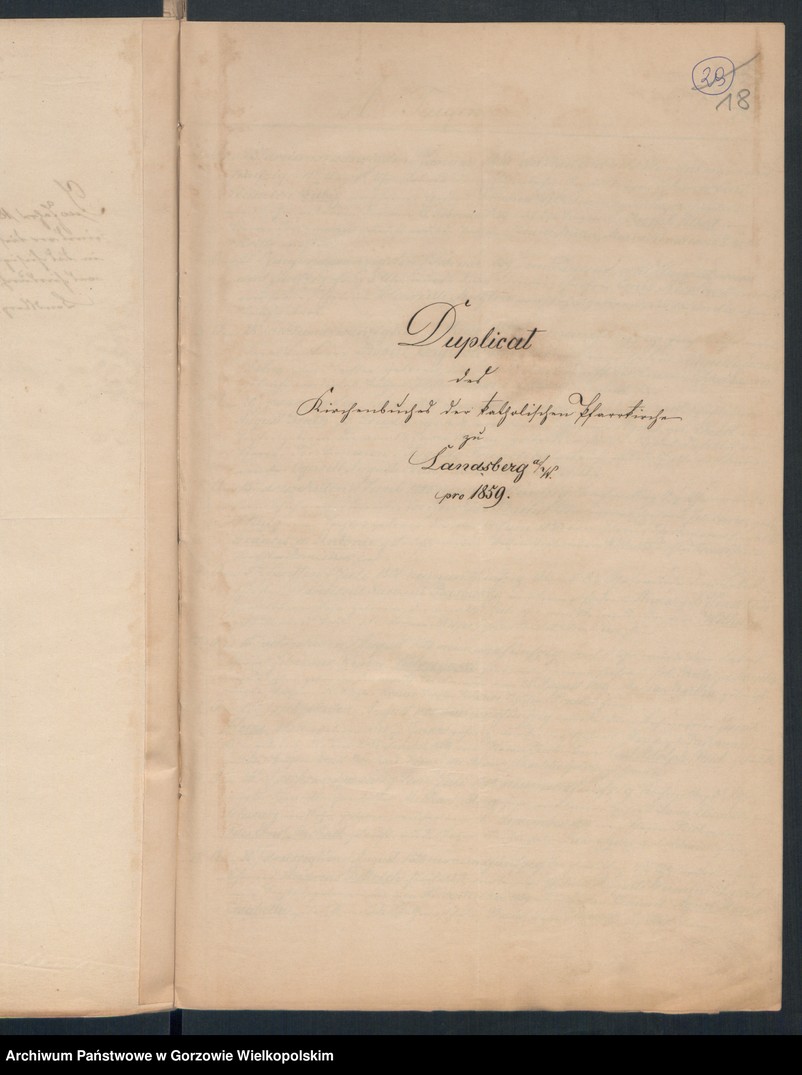 29
18
Duplicat
des
Kirchenbuches der katholischen Pfarrkirche
zu
Landsberg a/W.
pro 1859.
Archiwum Państwowe w Gorzowie Wielkopolskim